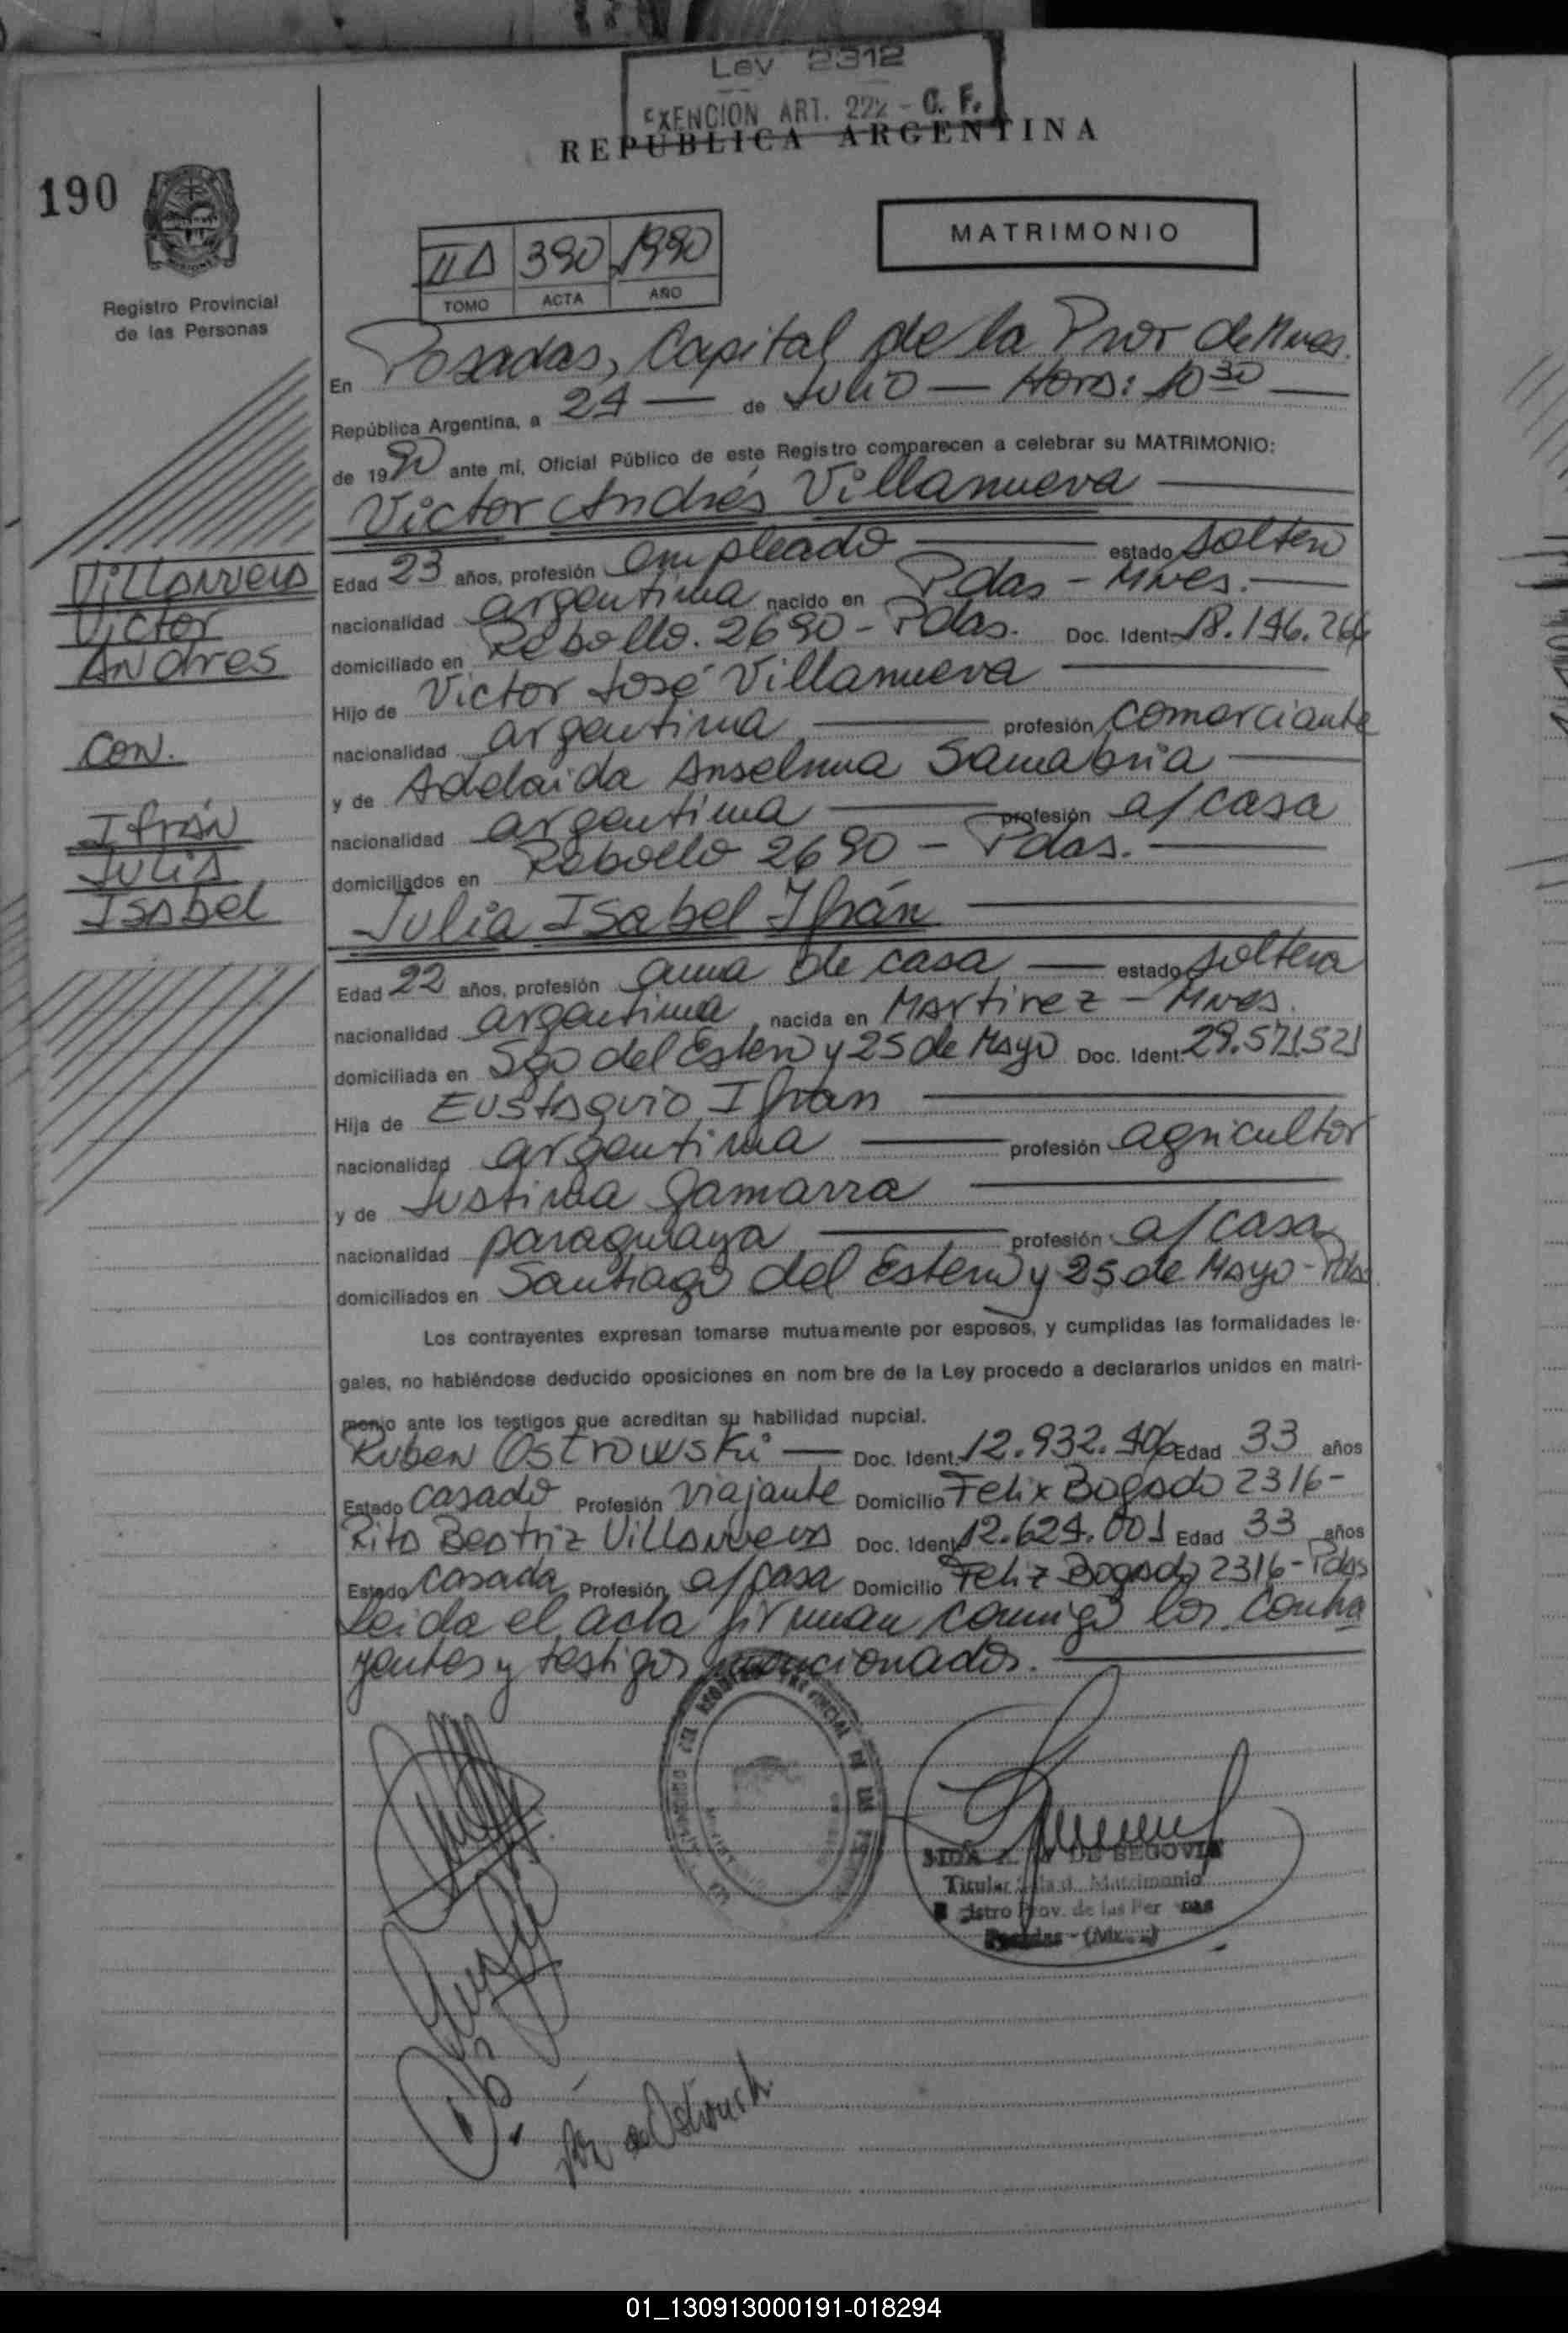 Ley 2312
EXENCION ART. 222 - C. F.
REPUBLICA ARGENTINA
190
MATRIMONIO
II A 390 1990
TOMO ACTA AÑO
Registro Provincial
de las Personas
En Posadas, Capital de la Prov de Mnes.
República Argentina, a 24 — de Julio — Hora: 10 30 —
de 1990 ante mí, Oficial Público de este Registro comparecen a celebrar su MATRIMONIO:
Victor Andrés Villanueva
Edad 23 años, profesión empleado estado soltero
nacionalidad argentina nacido en Pdas - Mnes.
domiciliado en Rebollo. 2690 - Pdas. Doc. Ident. 18.196.266
Hijo de Victor José Villanueva
nacionalidad argentina profesión comerciante
y de Adelaida Anselma Sanabria
nacionalidad argentina profesión a/casa
domiciliados en Rebollo 2690 - Pdas.
Villanueva
Victor
Andres
Con.
Ifrán
Julia
Isabel
Julia Isabel Ifrán
Edad 22 años, profesión ama de casa estado soltera
nacionalidad argentina nacida en Martirez - Mnes.
domiciliada en Sgo del Estero y 25 de Mayo Doc. Ident. 29.571.521
Hija de Eustaquio Ifran
nacionalidad argentina profesión agricultor
y de Justina Gamarra
nacionalidad paraguaya profesión a/casa
domiciliados en Santiago del Estero y 25 de Mayo - Pdas
Los contrayentes expresan tomarse mutuamente por esposos, y cumplidas las formalidades le-
gales, no habiéndose deducido oposiciones en nom bre de la Ley procedo a declararlos unidos en matri-
monio ante los testigos que acreditan su habilidad nupcial.
Ruben Ostrowski — Doc. Ident. 12.932.406 Edad 33 años
Estado casado Profesión viajante Domicilio Felix Bogado 2316 -
Rita Beatriz Villanueva Doc. Ident. 12.624.001 Edad 33 años
Estado casada Profesión a/casa Domicilio Feliz Bogado 2316 - Pdas
Leida el acta firman conmigo los contra
yentes y testigos mencionados.
DE SEGOVIA
Titular Sala d. Matrimonio
istro Prov. de las Per nas
Posadas - (Mnes.)
01_130913000191-018294